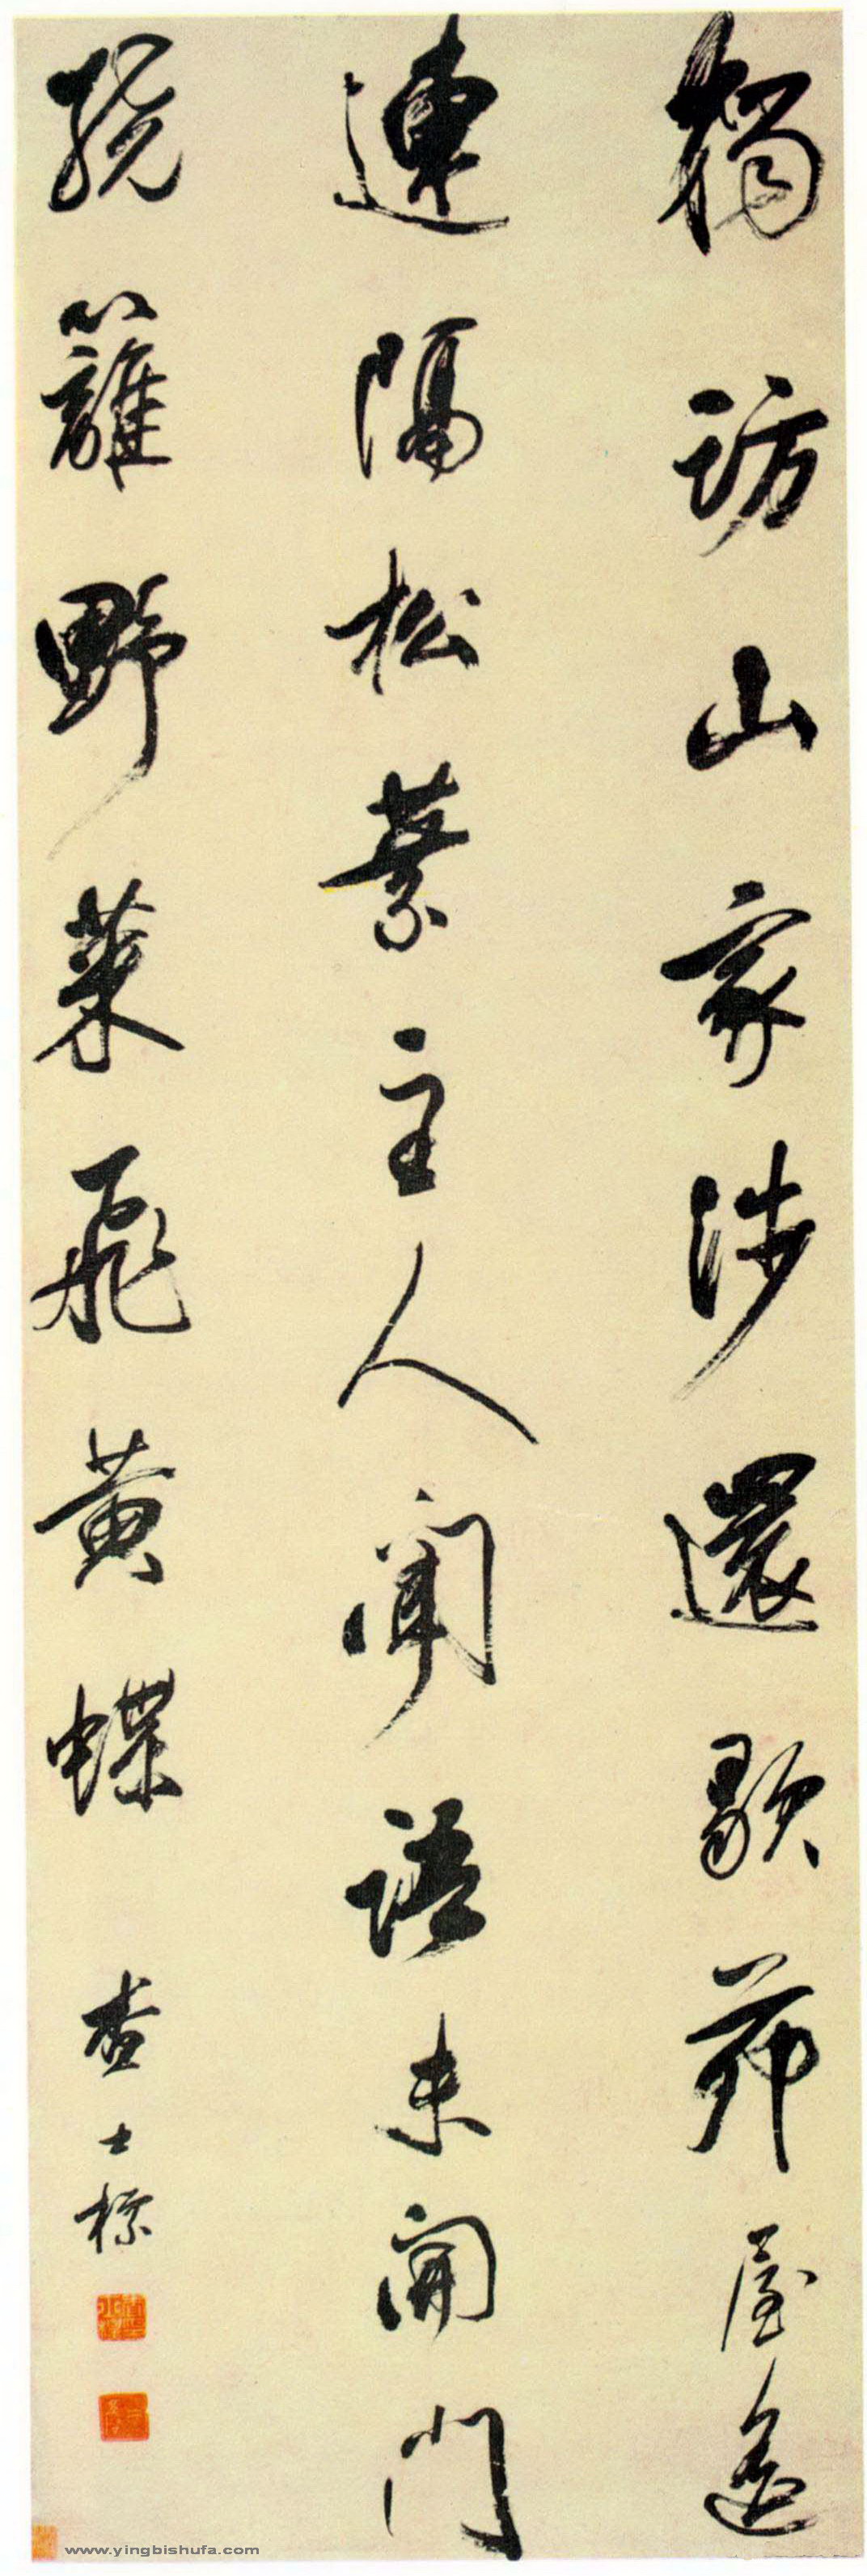 獨訪山家涉還歇茆屋遙
連隔松葉主人聞語未開門
繞籬野菜飛黃蝶
查士標
www.yingbishufa.com